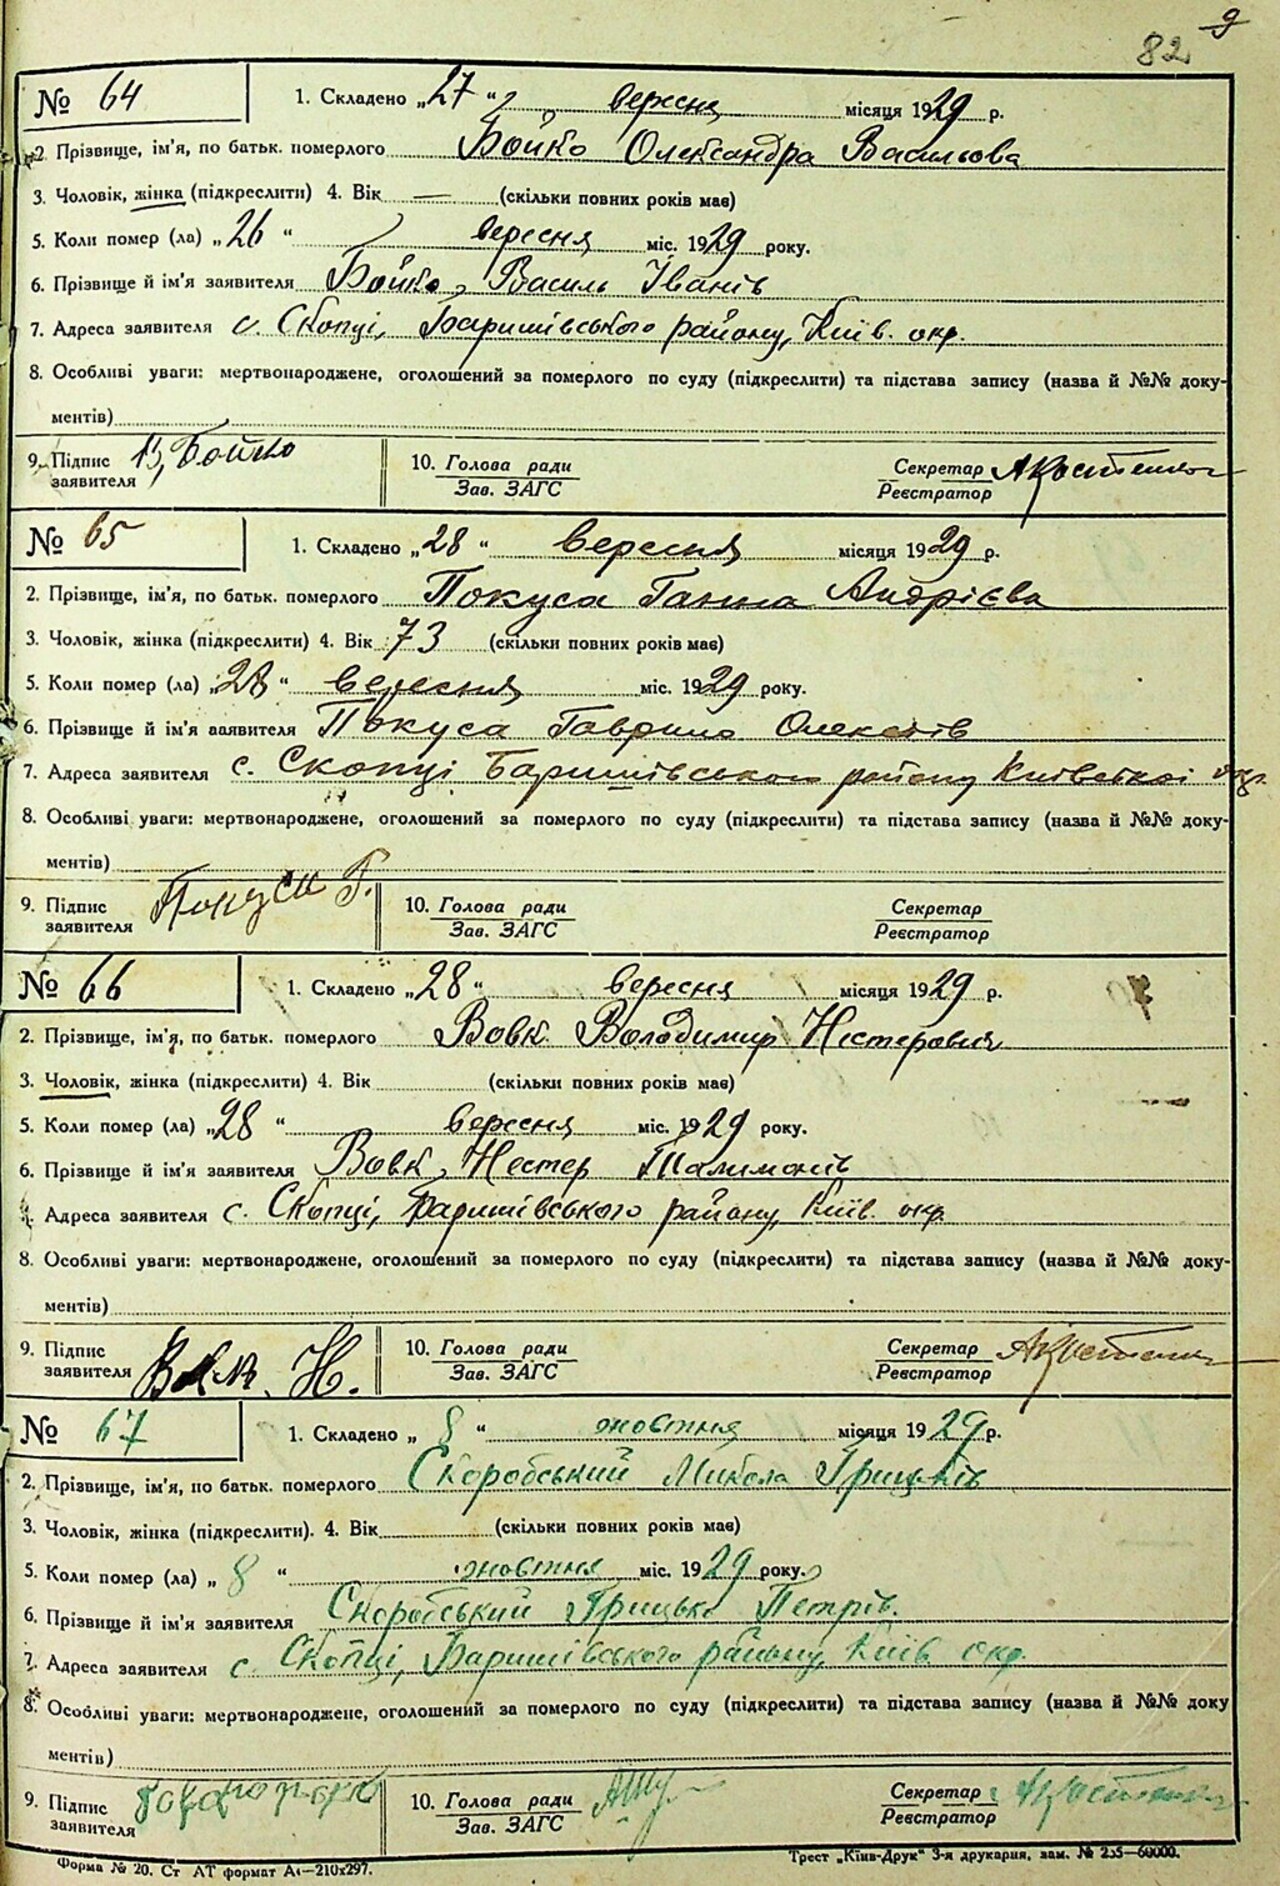 9
82
№ 64 1. Складено „27“ вересня місяця 1929 р.
2 Прізвище, ім'я, по батьк. померлого Бойко Олександра Васильова
3. Чоловік, жінка (підкреслити) 4. Вік — (скільки повних років має)
5. Коли помер (ла) „26“ вересня міс. 1929 року.
6. Прізвище й ім'я заявителя Бойко, Василь Іванів
7. Адреса заявителя с. Скопці, Баришівського району, Київ. окр.
8. Особливі уваги: мертвонароджене, оголошений за померлого по суду (підкреслити) та підстава запису (назва й №№ доку-
ментів)
9. Підпис заявителя В, Бойко 10. Голова ради Зав. ЗАГС Секретар Реєстратор АКостенко
№ 65 1. Складено „28“ вересня місяця 1929 р.
2. Прізвище, ім'я, по батьк. померлого Покуса Ганна Андрієва
3. Чоловік, жінка (підкреслити) 4. Вік 73 (скільки повних років має)
5. Коли помер (ла) „28“ вересня міс. 1929 року.
6. Прізвище й ім'я заявителя Покуса Гаврило Олексіїв
7. Адреса заявителя с. Скопці Баришівського району Київської окр.
8. Особливі уваги: мертвонароджене, оголошений за померлого по суду (підкреслити) та підстава запису (назва й №№ доку-
ментів)
9. Підпис заявителя Покуса Г. 10. Голова ради Зав. ЗАГС Секретар Реєстратор
№ 66 1. Складено „28“ вересня місяця 1929 р.
2. Прізвище, ім'я, по батьк. померлого Вовк Володимир Нестерович
3. Чоловік, жінка (підкреслити) 4. Вік (скільки повних років має)
5. Коли помер (ла) „28“ вересня міс. 1929 року.
6. Прізвище й ім'я заявителя Вовк, Нестер Палимонів
Адреса заявителя с. Скопці, Баришівського району, Київ. окр.
8. Особливі уваги: мертвонароджене, оголошений за померлого по суду (підкреслити) та підстава запису (назва й №№ доку-
ментів)
9. Підпис заявителя Вовк. Н. 10. Голова ради Зав. ЗАГС Секретар Реєстратор АКостенко
№ 67 1. Складено „8“ жовтня місяця 1929 р.
2. Прізвище, ім'я, по батьк. померлого Скоробський Микола Грицьків
3. Чоловік, жінка (підкреслити). 4. Вік (скільки повних років має)
5. Коли помер (ла) „8“ жовтня міс. 1929 року.
6. Прізвище й ім'я заявителя Скоробський Грицько Петрів.
7. Адреса заявителя с. Скопці, Баришівського району, Київ. окр.
8. Особливі уваги: мертвонароджене, оголошений за померлого по суду (підкреслити) та підстава запису (назва й №№ доку
ментів)
9. Підпис заявителя 10. Голова ради Зав. ЗАГС Секретар Реєстратор АКостенко
Форма № 20. Ст АТ формат А4—210х297. Трест „Київ-Друк“ 3-я друкарня, зам. № 235—60000.